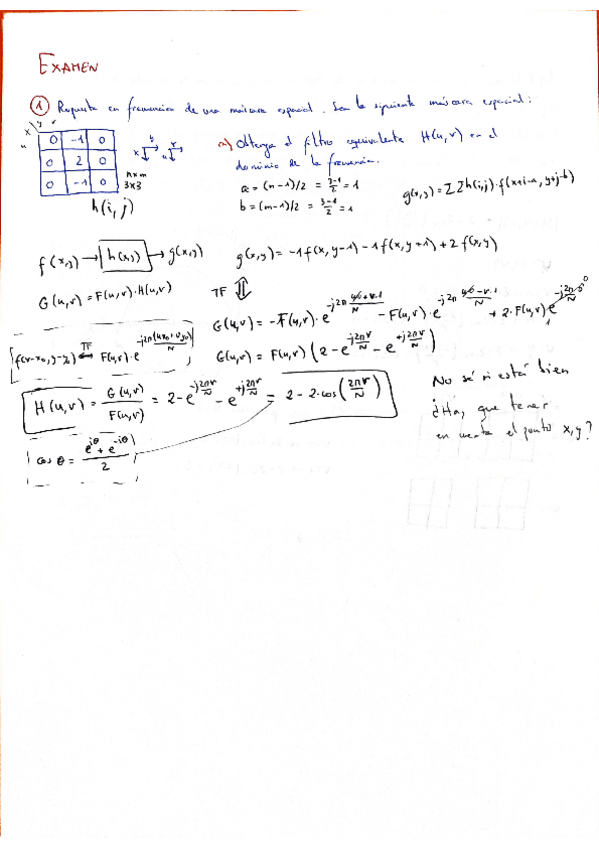 EXAMEN
① Respuesta en frecuencia de una máscara espacial. Sea la siguiente máscara espacial:
x y v
u 0 -1 0
0 2 0
0 -1 0
n×m
3x3
h(i,j)
y x v u
a) Obtenga el filtro equivalente H(u,v) en el
dominio de la frecuencia.
a = (n-1)/2 = 3-1/2 = 1
b = (m-1)/2 = 3-1/2 = 1
g(x,y) = ΣΣh(i,j)·f(x+i-a, y+j-b)
f(x,y) → h(x,y) → g(x,y)
g(x,y) = -1f(x,y-1) - 1f(x,y+1) + 2f(x,y)
G(u,v) = F(u,v)·H(u,v)
TF ⇕
G(u,v) = -F(u,v)·e^{-j2π (u·0+v·1)/N} - F(u,v)·e^{-j2π (u·0-v·1)/N} + 2·F(u,v)e^{-j2π·0/N} 0 1
f(x-x₀,y-y₀) TF ⟷ F(u,v)·e^{-j2π(ux₀+vy₀)/N}
G(u,v) = F(u,v)(2-e^{-j2πv/N} - e^{+j2πv/N})
H(u,v) = G(u,v)/F(u,v) = 2-e^{-j2πv/N} - e^{+j2πv/N} = 2-2·cos(2πv/N)
No sé si está bien
¿Hay que tener
en cuenta el punto x,y?
cos θ = (e^{jθ} + e^{-jθ})/2